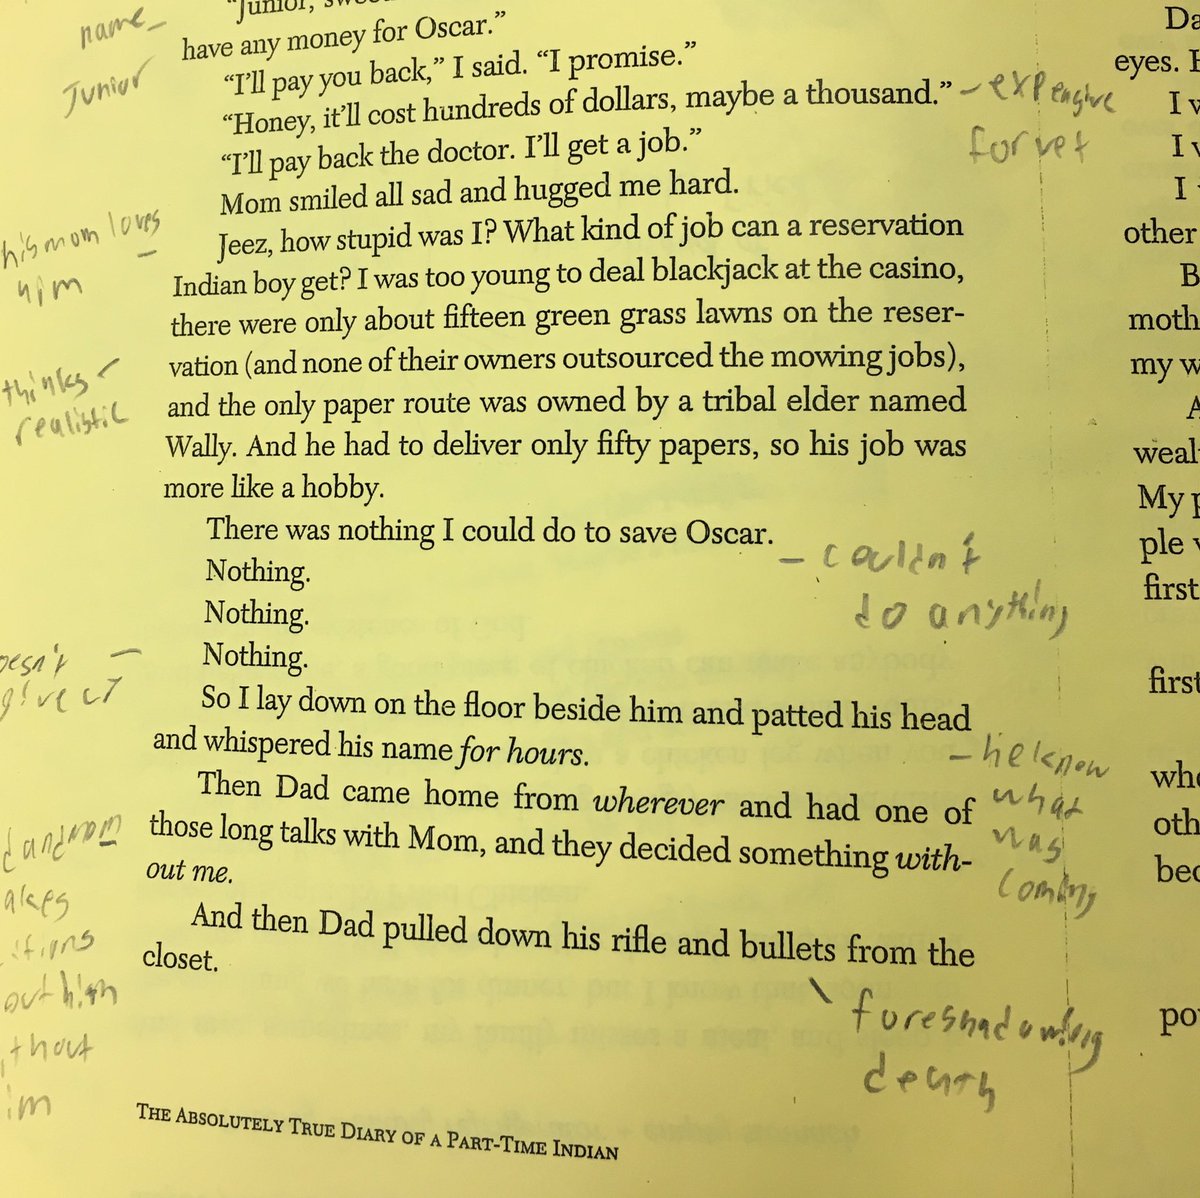 "Junior,
have any money for Oscar."
"I'll pay you back," I said. "I promise."
"Honey, it'll cost hundreds of dollars, maybe a thousand."
"I'll pay back the doctor. I'll get a job."
Mom smiled all sad and hugged me hard.
Jeez, how stupid was I? What kind of job can a reservation
Indian boy get? I was too young to deal blackjack at the casino,
there were only about fifteen green grass lawns on the reser-
vation (and none of their owners outsourced the mowing jobs),
and the only paper route was owned by a tribal elder named
Wally. And he had to deliver only fifty papers, so his job was
more like a hobby.
There was nothing I could do to save Oscar.
Nothing.
Nothing.
Nothing.
So I lay down on the floor beside him and patted his head
and whispered his name for hours.
Then Dad came home from wherever and had one of
those long talks with Mom, and they decided something with-
out me.
And then Dad pulled down his rifle and bullets from the
closet.
THE ABSOLUTELY TRUE DIARY OF A PART-TIME INDIAN
name –
Junior
his mom loves –
him
thinks –
realistic
– expengive
for vet
– couldn't
do anything
– he know
what
was
coming
foreshadowing
death
eyes.
I
I
I
other
moth
my
weal
My
ple
first
first
oth
bec